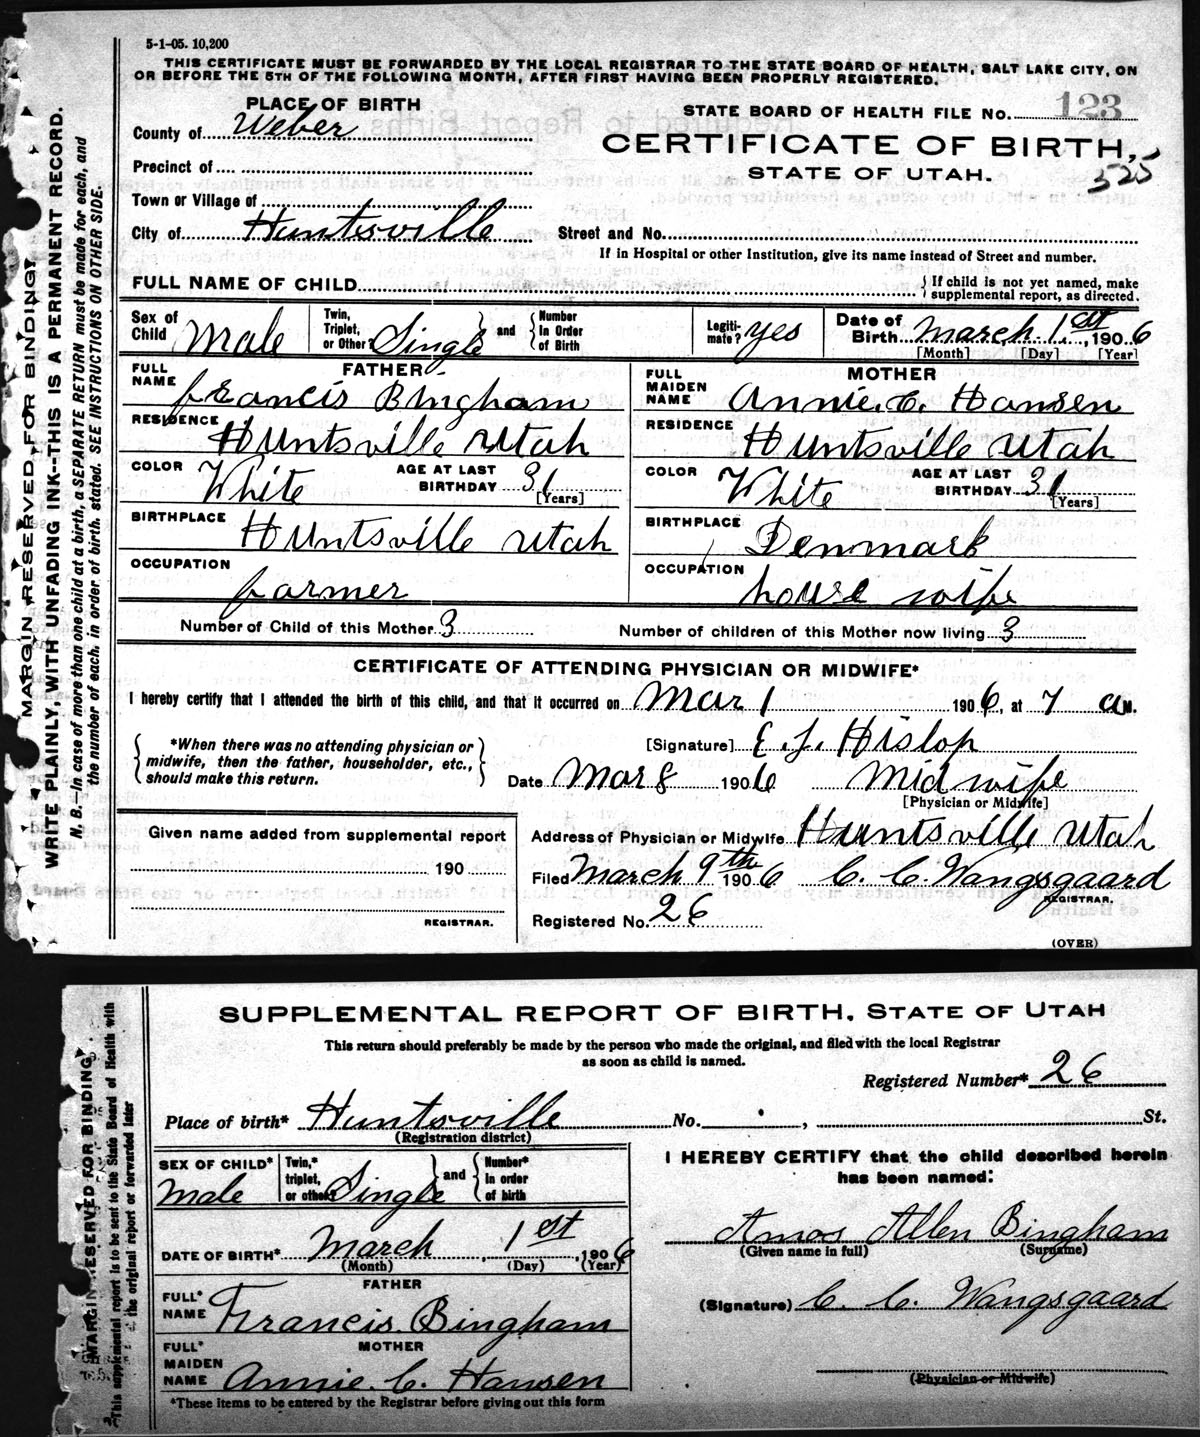 5-1-05. 10,200
THIS CERTIFICATE MUST BE FORWARDED BY THE LOCAL REGISTRAR TO THE STATE BOARD OF HEALTH, SALT LAKE CITY, ON
OR BEFORE THE 5TH OF THE FOLLOWING MONTH, AFTER FIRST HAVING BEEN PROPERLY REGISTERED.
MARGIN RESERVED FOR BINDING
WRITE PLAINLY, WITH UNFADING INK--THIS IS A PERMANENT RECORD.
N. B.—In case of more than one child at a birth, a SEPARATE RETURN must be made for each, and
the number of each, in order of birth, stated. SEE INSTRUCTIONS ON OTHER SIDE.
PLACE OF BIRTH
County of Weber
Precinct of
Town or Village of
City of Huntsville
STATE BOARD OF HEALTH FILE No. 123
CERTIFICATE OF BIRTH,
STATE OF UTAH.
525
Street and No.
If in Hospital or other Institution, give its name instead of Street and number.
FULL NAME OF CHILD
{ If child is not yet named, make
supplemental report, as directed.
Sex of Child Male
Twin, Triplet, or Other? Single } and { Number in Order of Birth
Legiti-mate? yes
Date of Birth March 1st, 1906
[Month] [Day] [Year]
FATHER
FULL NAME Francis Bingham
RESIDENCE Huntsville Utah
COLOR White AGE AT LAST BIRTHDAY 31 [Years]
BIRTHPLACE Huntsville Utah
OCCUPATION farmer
MOTHER
FULL MAIDEN NAME Annie. C. Hansen
RESIDENCE Huntsville Utah
COLOR White AGE AT LAST BIRTHDAY 31 [Years]
BIRTHPLACE Denmark
OCCUPATION house wife
Number of Child of this Mother 3 Number of children of this Mother now living 3
CERTIFICATE OF ATTENDING PHYSICIAN OR MIDWIFE*
I hereby certify that I attended the birth of this child, and that it occurred on Mar 1 1906, at 7 a M.
{ *When there was no attending physician or
midwife, then the father, householder, etc.,
should make this return. }
[Signature] E. J. Hislop
Date Mar 8 1906 Midwife
[Physician or Midwife]
Given name added from supplemental report
190
REGISTRAR.
Address of Physician or Midwife Huntsville Utah
Filed March 9th 1906 C. C. Wangsgaard
REGISTRAR.
Registered No. 26
(OVER)
SUPPLEMENTAL REPORT OF BIRTH, STATE OF UTAH
This return should preferably be made by the person who made the original, and filed with the local Registrar
as soon as child is named.
MARGIN RESERVED FOR BINDING
This supplemental report is to be sent to the State Board of Health with
the original report or forwarded later
Registered Number* 26
Place of birth* Huntsville No. , St.
(Registration district)
SEX OF CHILD* Male
Twin,* triplet, or other? Single } and { Number* in order of birth
DATE OF BIRTH* March, 1st, 1906
(Month) (Day) (Year)
FATHER
FULL* NAME Francis. Bingham
MOTHER
FULL* MAIDEN NAME Annie. C. Hansen
*These items to be entered by the Registrar before giving out this form
I HEREBY CERTIFY that the child described herein
has been named:
Amos Allen Bingham
(Given name in full) (Surname)
(Signature) C. C. Wangsgaard
(Physician or Midwife)